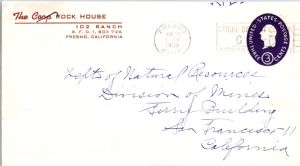 The Coop ROCK HOUSE
102 RANCH
R. F. D. 1, BOX 726
FRESNO, CALIFORNIA
FRESNO
UNITED STATES POSTAGE
3
THREE CENTS
Depts of Natural Resources
Division of Mines
Ferry Building
San Francisco 11
California